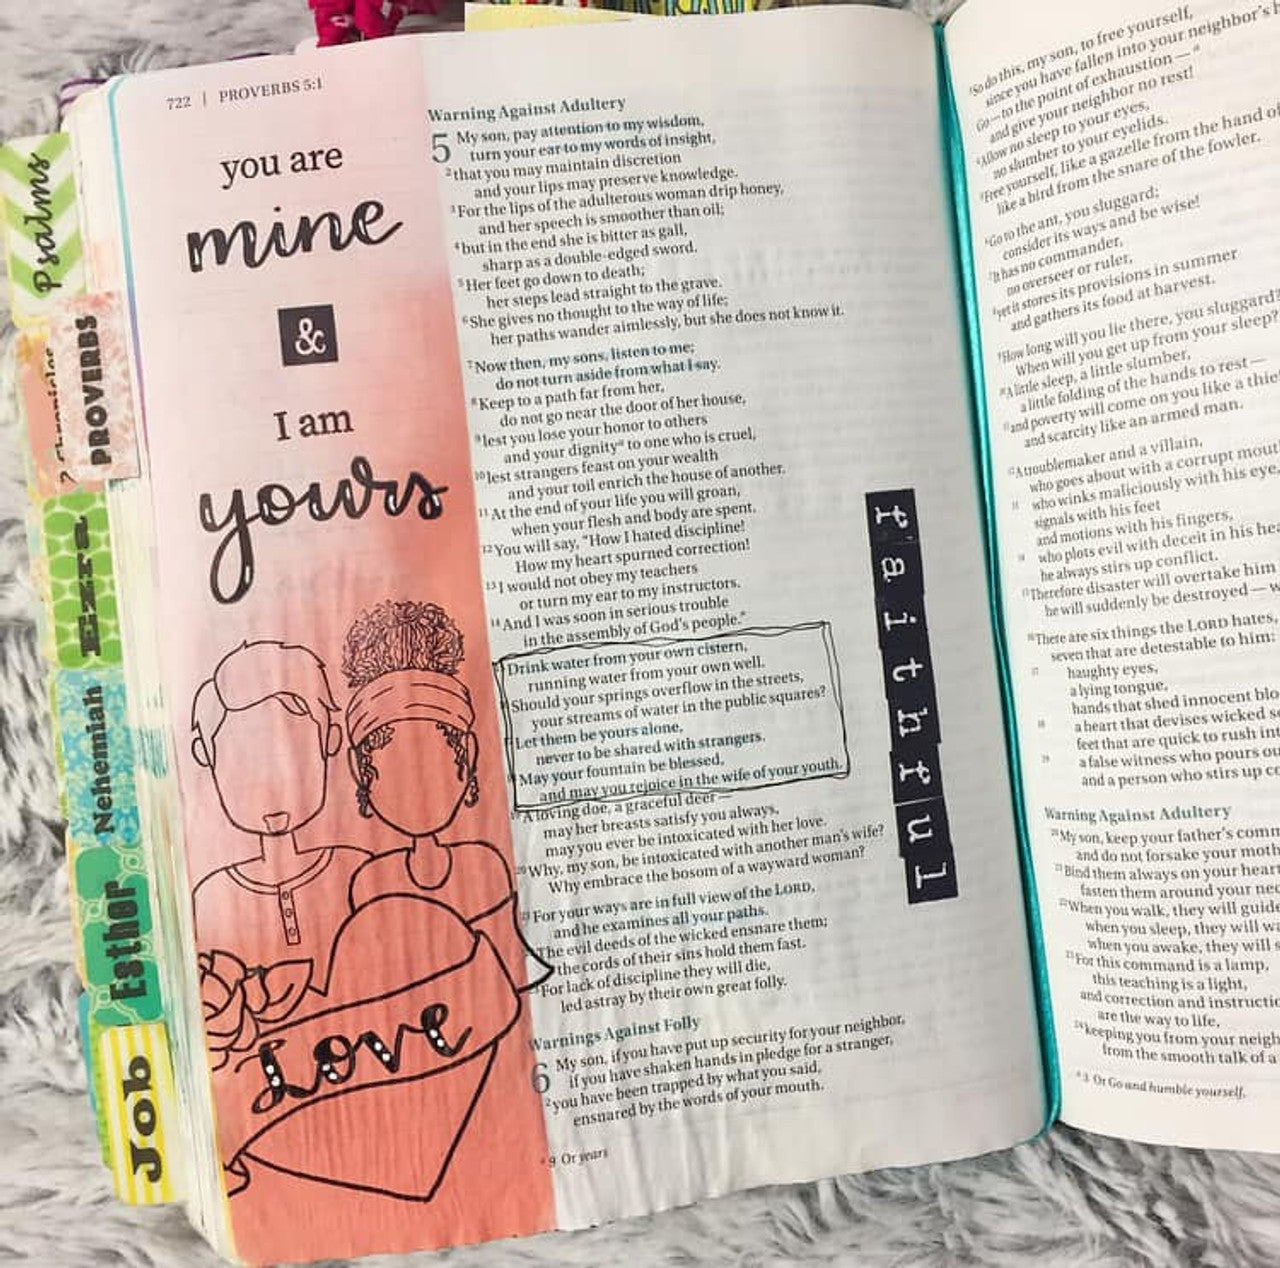 Psalms
PROVERBS
Ezra
Nehemiah
Esther
Job
722 | PROVERBS 5:1
you are
mine
&
I am
yours
Love
Warning Against Adultery
5 My son, pay attention to my wisdom,
turn your ear to my words of insight,
2 that you may maintain discretion
and your lips may preserve knowledge.
3 For the lips of the adulterous woman drip honey,
and her speech is smoother than oil;
4 but in the end she is bitter as gall,
sharp as a double-edged sword.
5 Her feet go down to death;
her steps lead straight to the grave.
6 She gives no thought to the way of life;
her paths wander aimlessly, but she does not know it.
7 Now then, my sons, listen to me;
do not turn aside from what I say.
8 Keep to a path far from her,
do not go near the door of her house,
9 lest you lose your honor to others
and your dignity a to one who is cruel,
10 lest strangers feast on your wealth
and your toil enrich the house of another.
11 At the end of your life you will groan,
when your flesh and body are spent.
12 You will say, “How I hated discipline!
How my heart spurned correction!
13 I would not obey my teachers
or turn my ear to my instructors.
14 And I was soon in serious trouble
in the assembly of God’s people.”
Drink water from your own cistern,
running water from your own well.
Should your springs overflow in the streets,
your streams of water in the public squares?
Let them be yours alone,
never to be shared with strangers.
May your fountain be blessed,
and may you rejoice in the wife of your youth.
A loving doe, a graceful deer—
may her breasts satisfy you always,
may you ever be intoxicated with her love.
20 Why, my son, be intoxicated with another man’s wife?
Why embrace the bosom of a wayward woman?
For your ways are in full view of the LORD,
and he examines all your paths.
The evil deeds of the wicked ensnare them;
the cords of their sins hold them fast.
For lack of discipline they will die,
led astray by their own great folly.
Warnings Against Folly
6 My son, if you have put up security for your neighbor,
if you have shaken hands in pledge for a stranger,
2 you have been trapped by what you said,
ensnared by the words of your mouth.
a 9 Or years
faithful
3 So do this, my son, to free yourself,
since you have fallen into your neighbor’s
Go—to the point of exhaustion—a
and give your neighbor no rest!
4 Allow no sleep to your eyes,
no slumber to your eyelids.
5 Free yourself, like a gazelle from the hand of
like a bird from the snare of the fowler.
6 Go to the ant, you sluggard;
consider its ways and be wise!
7 It has no commander,
no overseer or ruler,
8 yet it stores its provisions in summer
and gathers its food at harvest.
9 How long will you lie there, you sluggard?
When will you get up from your sleep?
10 A little sleep, a little slumber,
a little folding of the hands to rest—
11 and poverty will come on you like a thief
and scarcity like an armed man.
12 A troublemaker and a villain,
who goes about with a corrupt
13 who winks maliciously with his eye,
signals with his feet
and motions with his fingers,
14 who plots evil with deceit in his
he always stirs up conflict.
15 Therefore disaster will overtake him
he will suddenly be destroyed—
16 There are six things the LORD hates,
seven that are detestable to him:
17 haughty eyes,
a lying tongue,
hands that shed innocent
18 a heart that devises wicked
feet that are quick to rush
19 a false witness who pours
and a person who stirs up
Warning Against Adultery
20 My son, keep your father’s
and do not forsake your
21 Bind them always on your heart
fasten them around your
22 When you walk, they will guide
when you sleep, they will
when you awake, they will
23 For this command is a lamp,
this teaching is a light,
and correction and
are the way to life,
24 keeping you from your
from the smooth talk of a
a 3 Or Go and humble yourself,